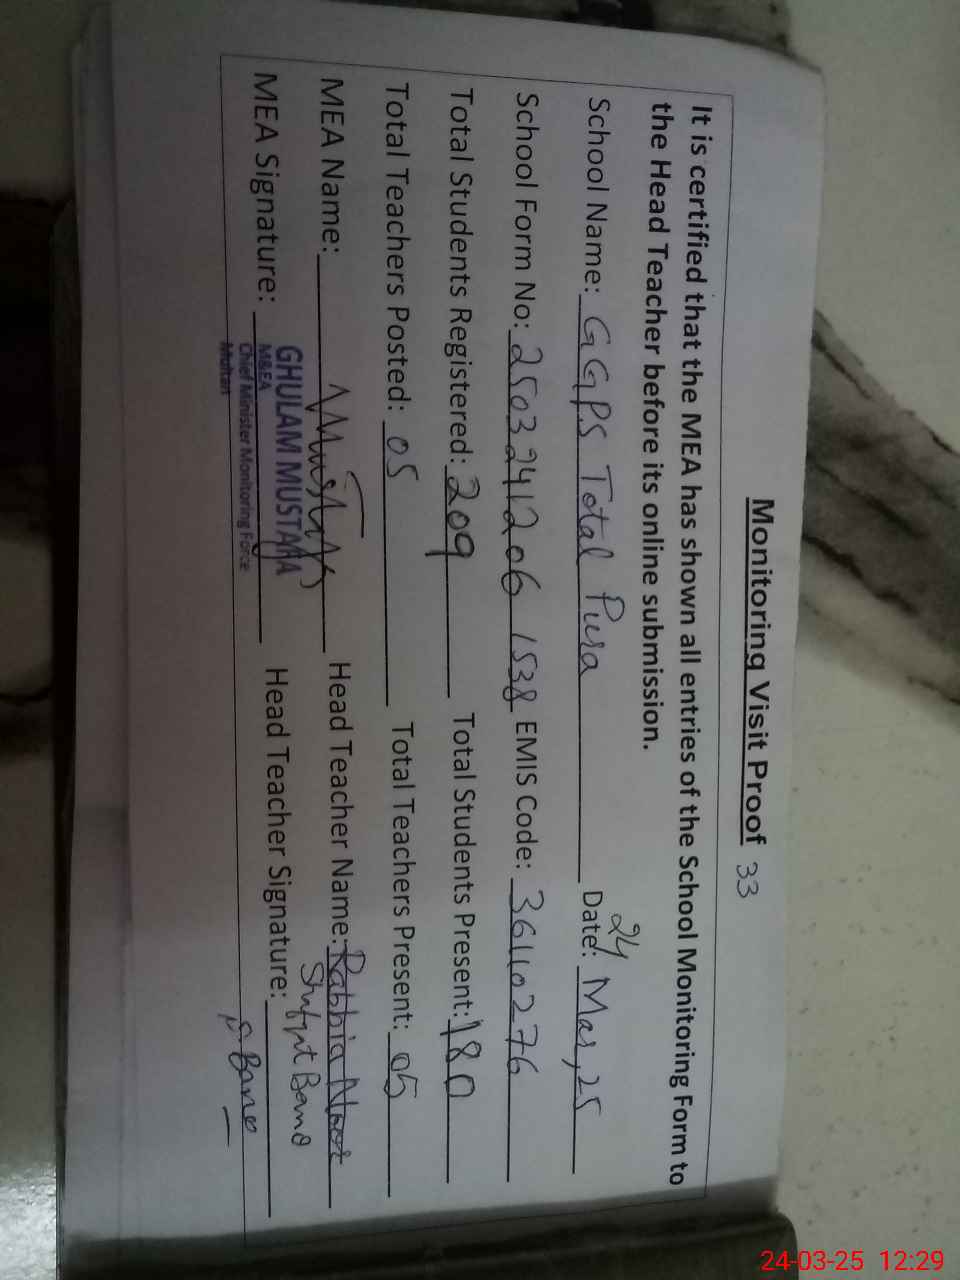 Monitoring Visit Proof 33
It is certified that the MEA has shown all entries of the School Monitoring Form to
the Head Teacher before its online submission.
School Name: GGPS Total Pura Date: 24 Mar, 25
School Form No: 2503 2412 06 1538 EMIS Code: 36110276
Total Students Registered: 209 Total Students Present: 180
Total Teachers Posted: 05 Total Teachers Present: 05
MEA Name: Head Teacher Name: Rabbia Noor
Bano
MEA Signature: GHULAM MUSTAFA Head Teacher Signature: S. Bano
M&EA
Chief Minister Monitoring Force
Multan
24-03-25 12:29